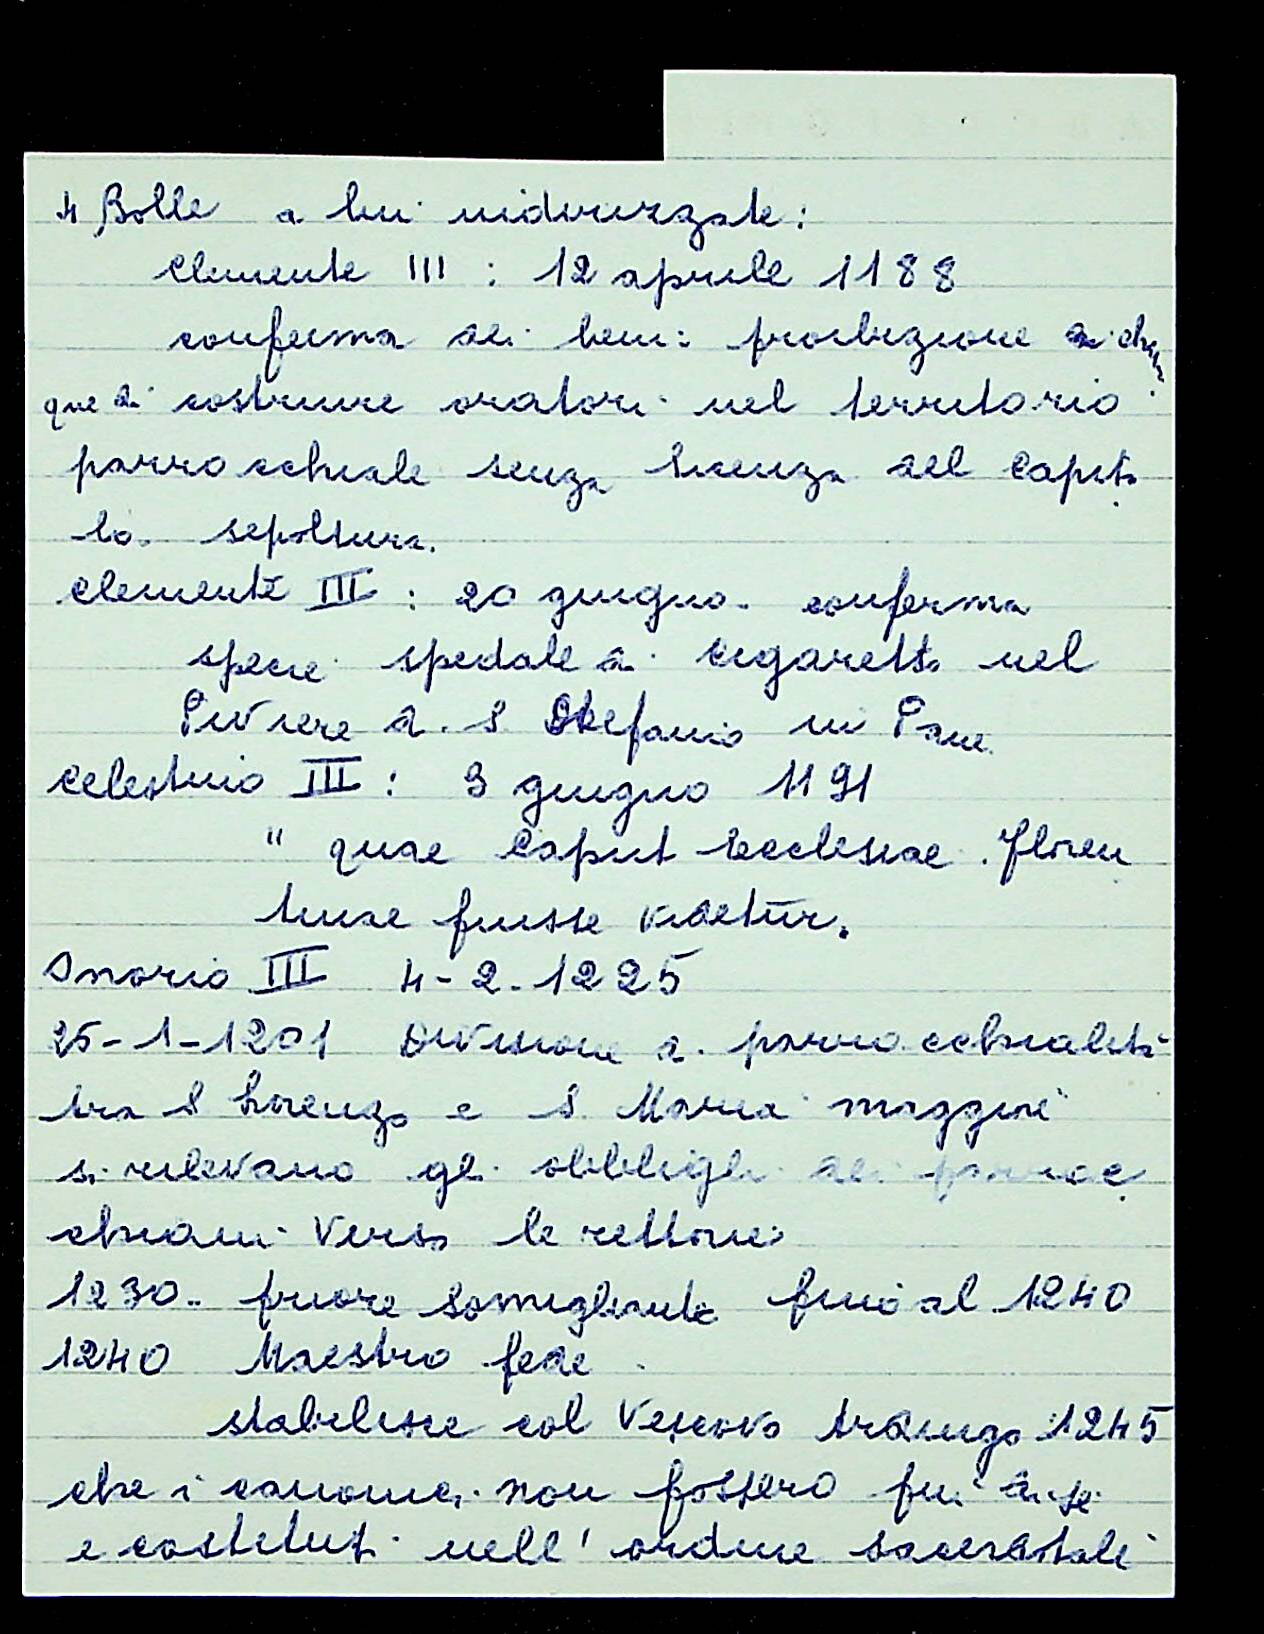 4 Bolle a lui indirizzate:
Clemente III : 12 aprile 1188
conferma dei beni: proibizione a chiun
que di costruire oratori nel territorio
parrocchiale senza licenza del Capito
lo. sepoltura.
Clemente III : 20 giugno. conferma
specie spedale di Cigaretto nel
Piviere di S. Stefanio in Pane
Celestino III : 3 giugno 1191
" quae Caput Ecclesiae Floren
tinae fuisse videtur.
Onorio III 4-2-1225
25-1-1201 Divisione di parrocchialità
tra S Lorenzo e S. Maria maggiore
si rilevano gli obblighi dei parroc
chiani verso le rettorie
1230. priore Somigliante fino al 1240
1240 Maestro fede
stabilisce col Vescovo 1245
che i canonici non fossero più di sei
e costituti nell'ordine sacerdotale